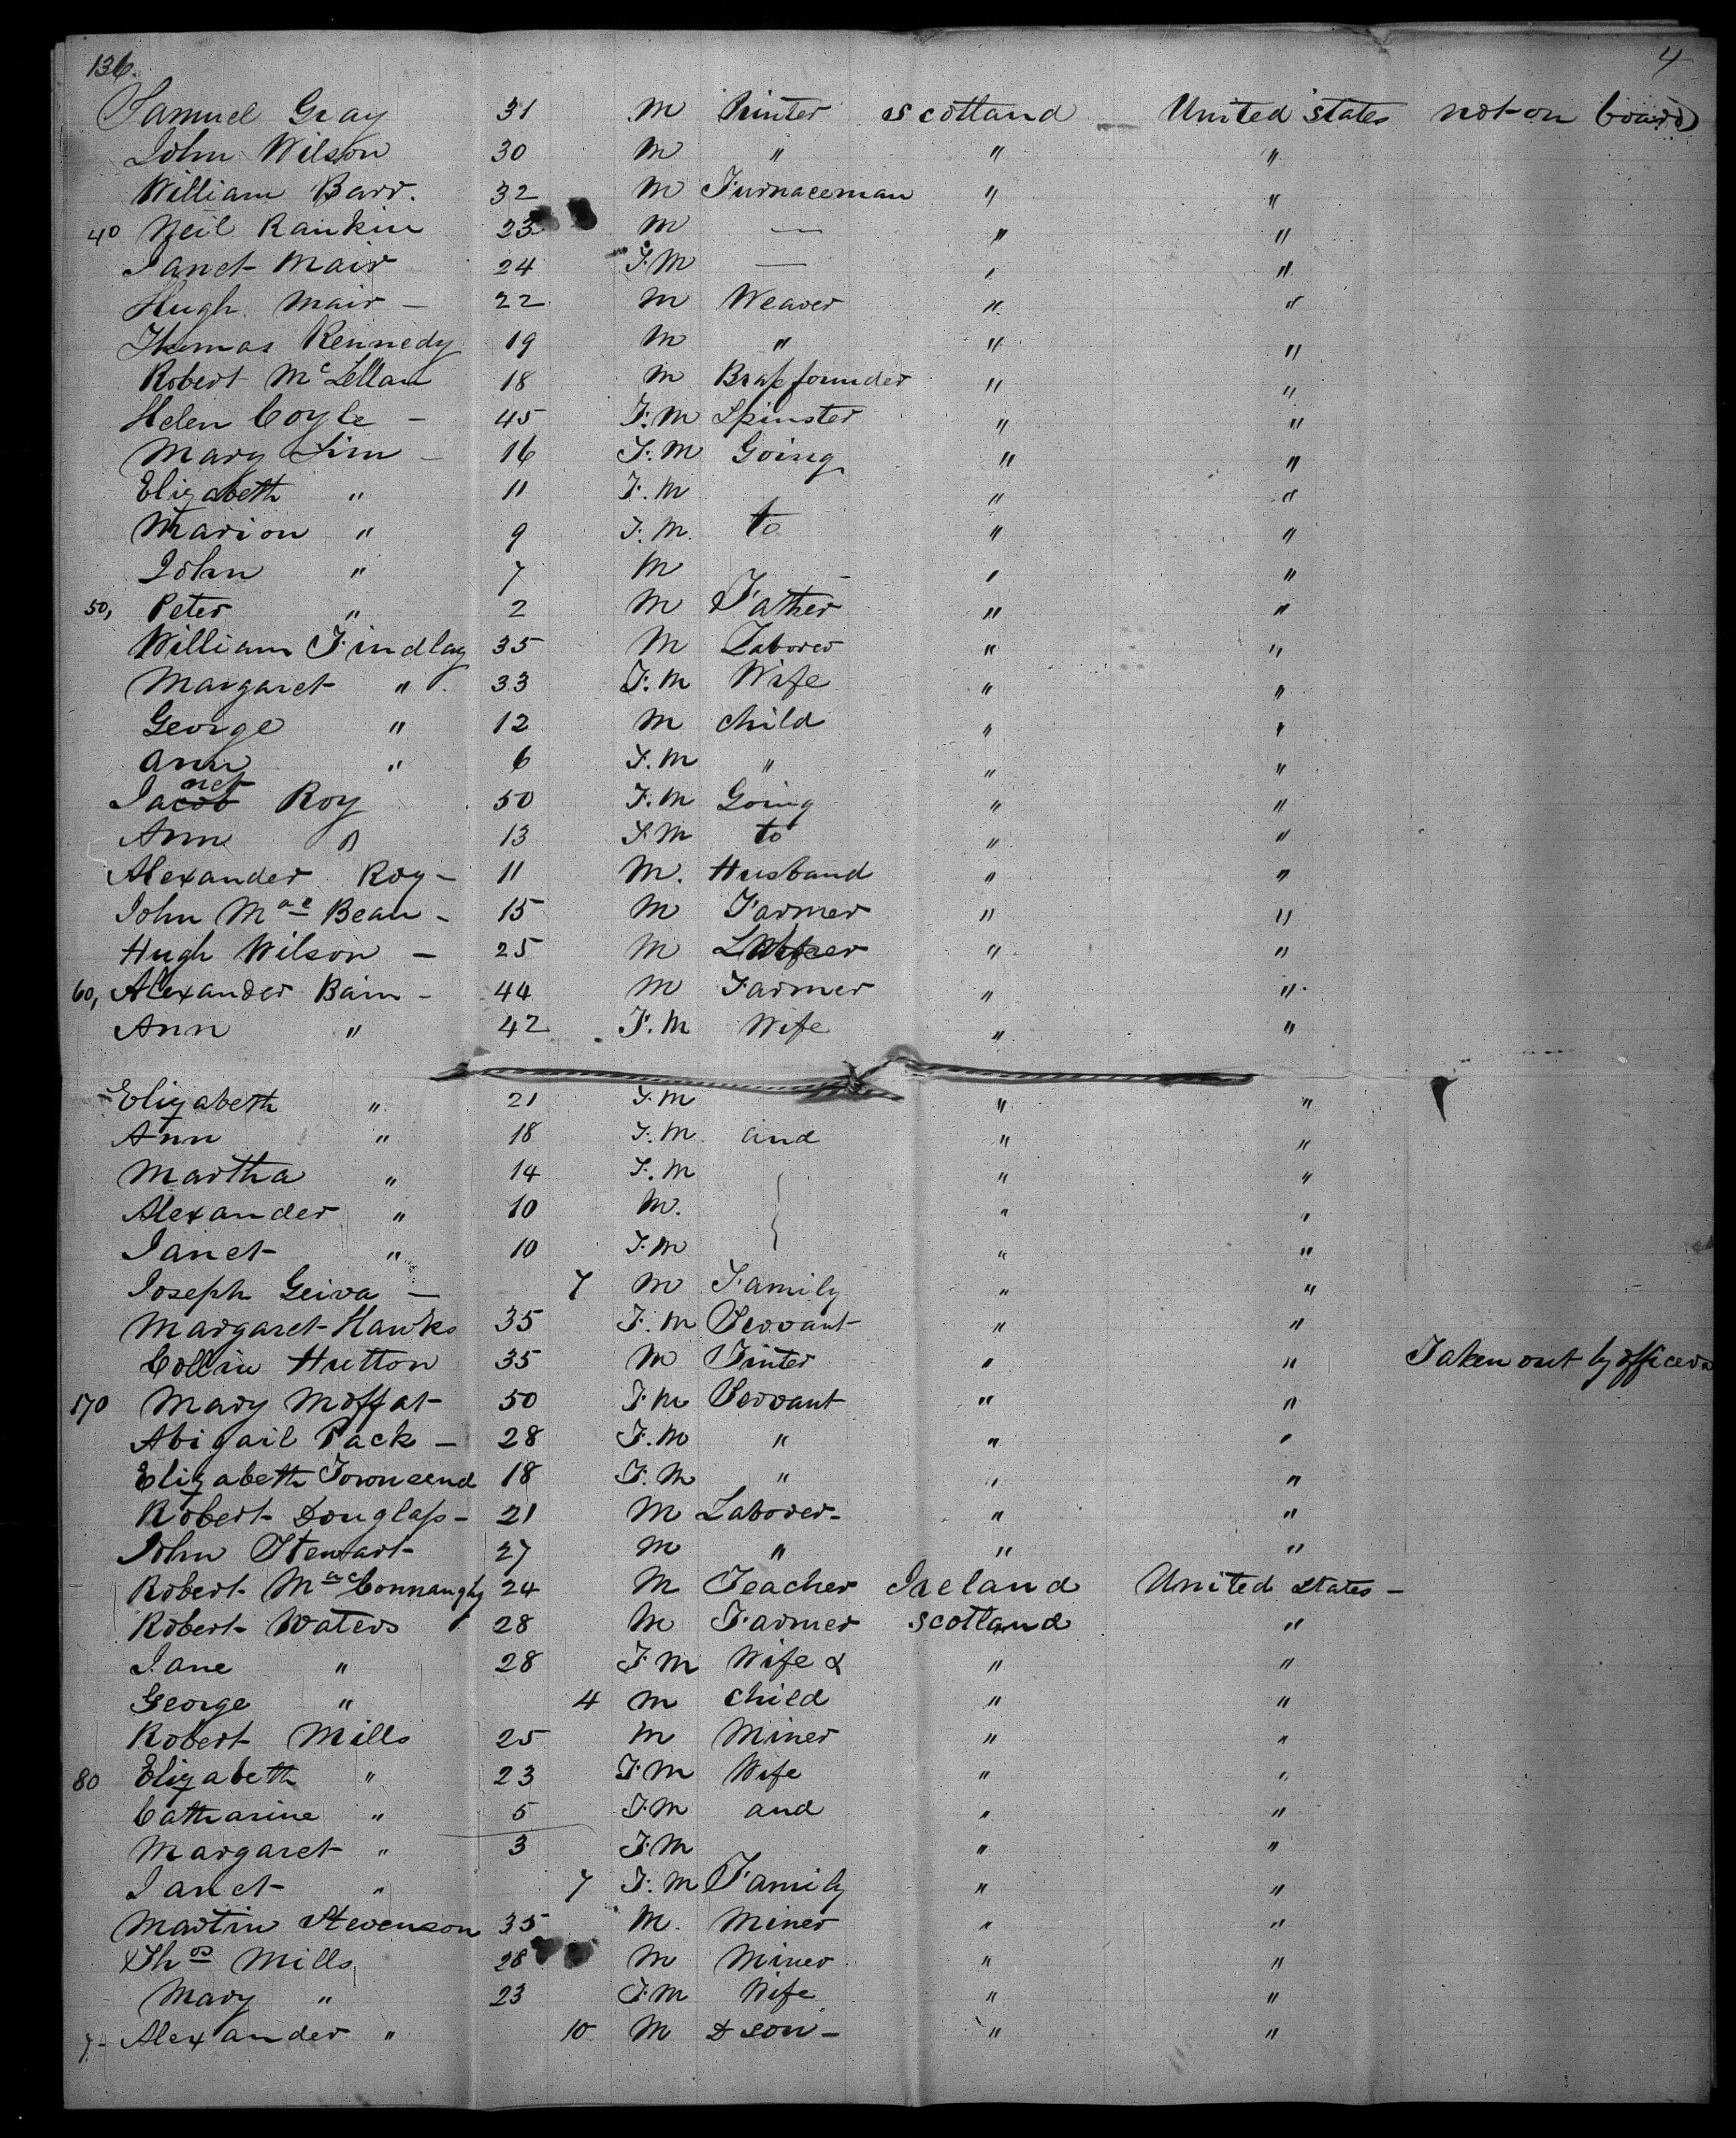 136. 4
Samuel Gray 31 M Printer Scotland United States not on board
John Wilson 30 M " " "
William Barr. 32 M Furnaceman " "
40 Neil Rankin 23 M — " "
Janet Mair 24 F.M — " "
Hugh Mair — 22 M Weaver " "
Thomas Kennedy 19 M " " "
Robert McLellan 18 M Brassfounder " "
Helen Coyle — 45 F.M Spinster " "
Mary Sim — 16 F.M Going " "
Elizabeth " 11 F.M " "
Marion " 9 F.M. to " "
John " 7 M " "
50, Peter " 2 M Father " "
William Findlay 35 M Laborer " "
Margaret " 33 F.M Wife " "
George " 12 M child " "
Ann " 6 F.M " " "
Janet Roy 50 F.M Going " "
Ann " 13 F.M to " "
Alexander Roy — 11 M. Husband " "
John Mac Bean — 15 M Farmer " "
Hugh Wilson — 25 M " "
60, Alexander Bain — 44 M Farmer " "
Ann " 42 F.M Wife " "
Elizabeth " 21 F.M " "
Ann " 18 F.M. and " "
Martha " 14 F.M " "
Alexander " 10 M. " "
Janet " 10 F.M " "
Joseph Geiva — 7 M Family " "
Margaret Hawks 35 F.M Servant " "
Collin Hutton 35 M " " Taken out by officers
170 Mary Moffat 50 F.M Servant " "
Abigail Pack — 28 F.M " " "
Elizabeth Townsend 18 F.M " " "
Robert Douglass — 21 M Laborer — " "
John Stewart 27 M " " "
Robert MacConnaughy 24 M Teacher Ireland United States —
Robert Waters 28 M Farmer Scotland "
Jane " 28 F.M Wife & " "
George " 4 M Child " "
Robert Mills 25 M Miner " "
80 Elizabeth " 23 F.M Wife " "
Catharine " 5 F.M and " "
Margaret " 3 F.M " "
Janet " 7 F.M Family " "
Martin Stevenson 35 M. Miner " "
Thos Mills 28 M Miner " "
Mary " 23 F.M Wife " "
7- Alexander " 10 M & son — " "